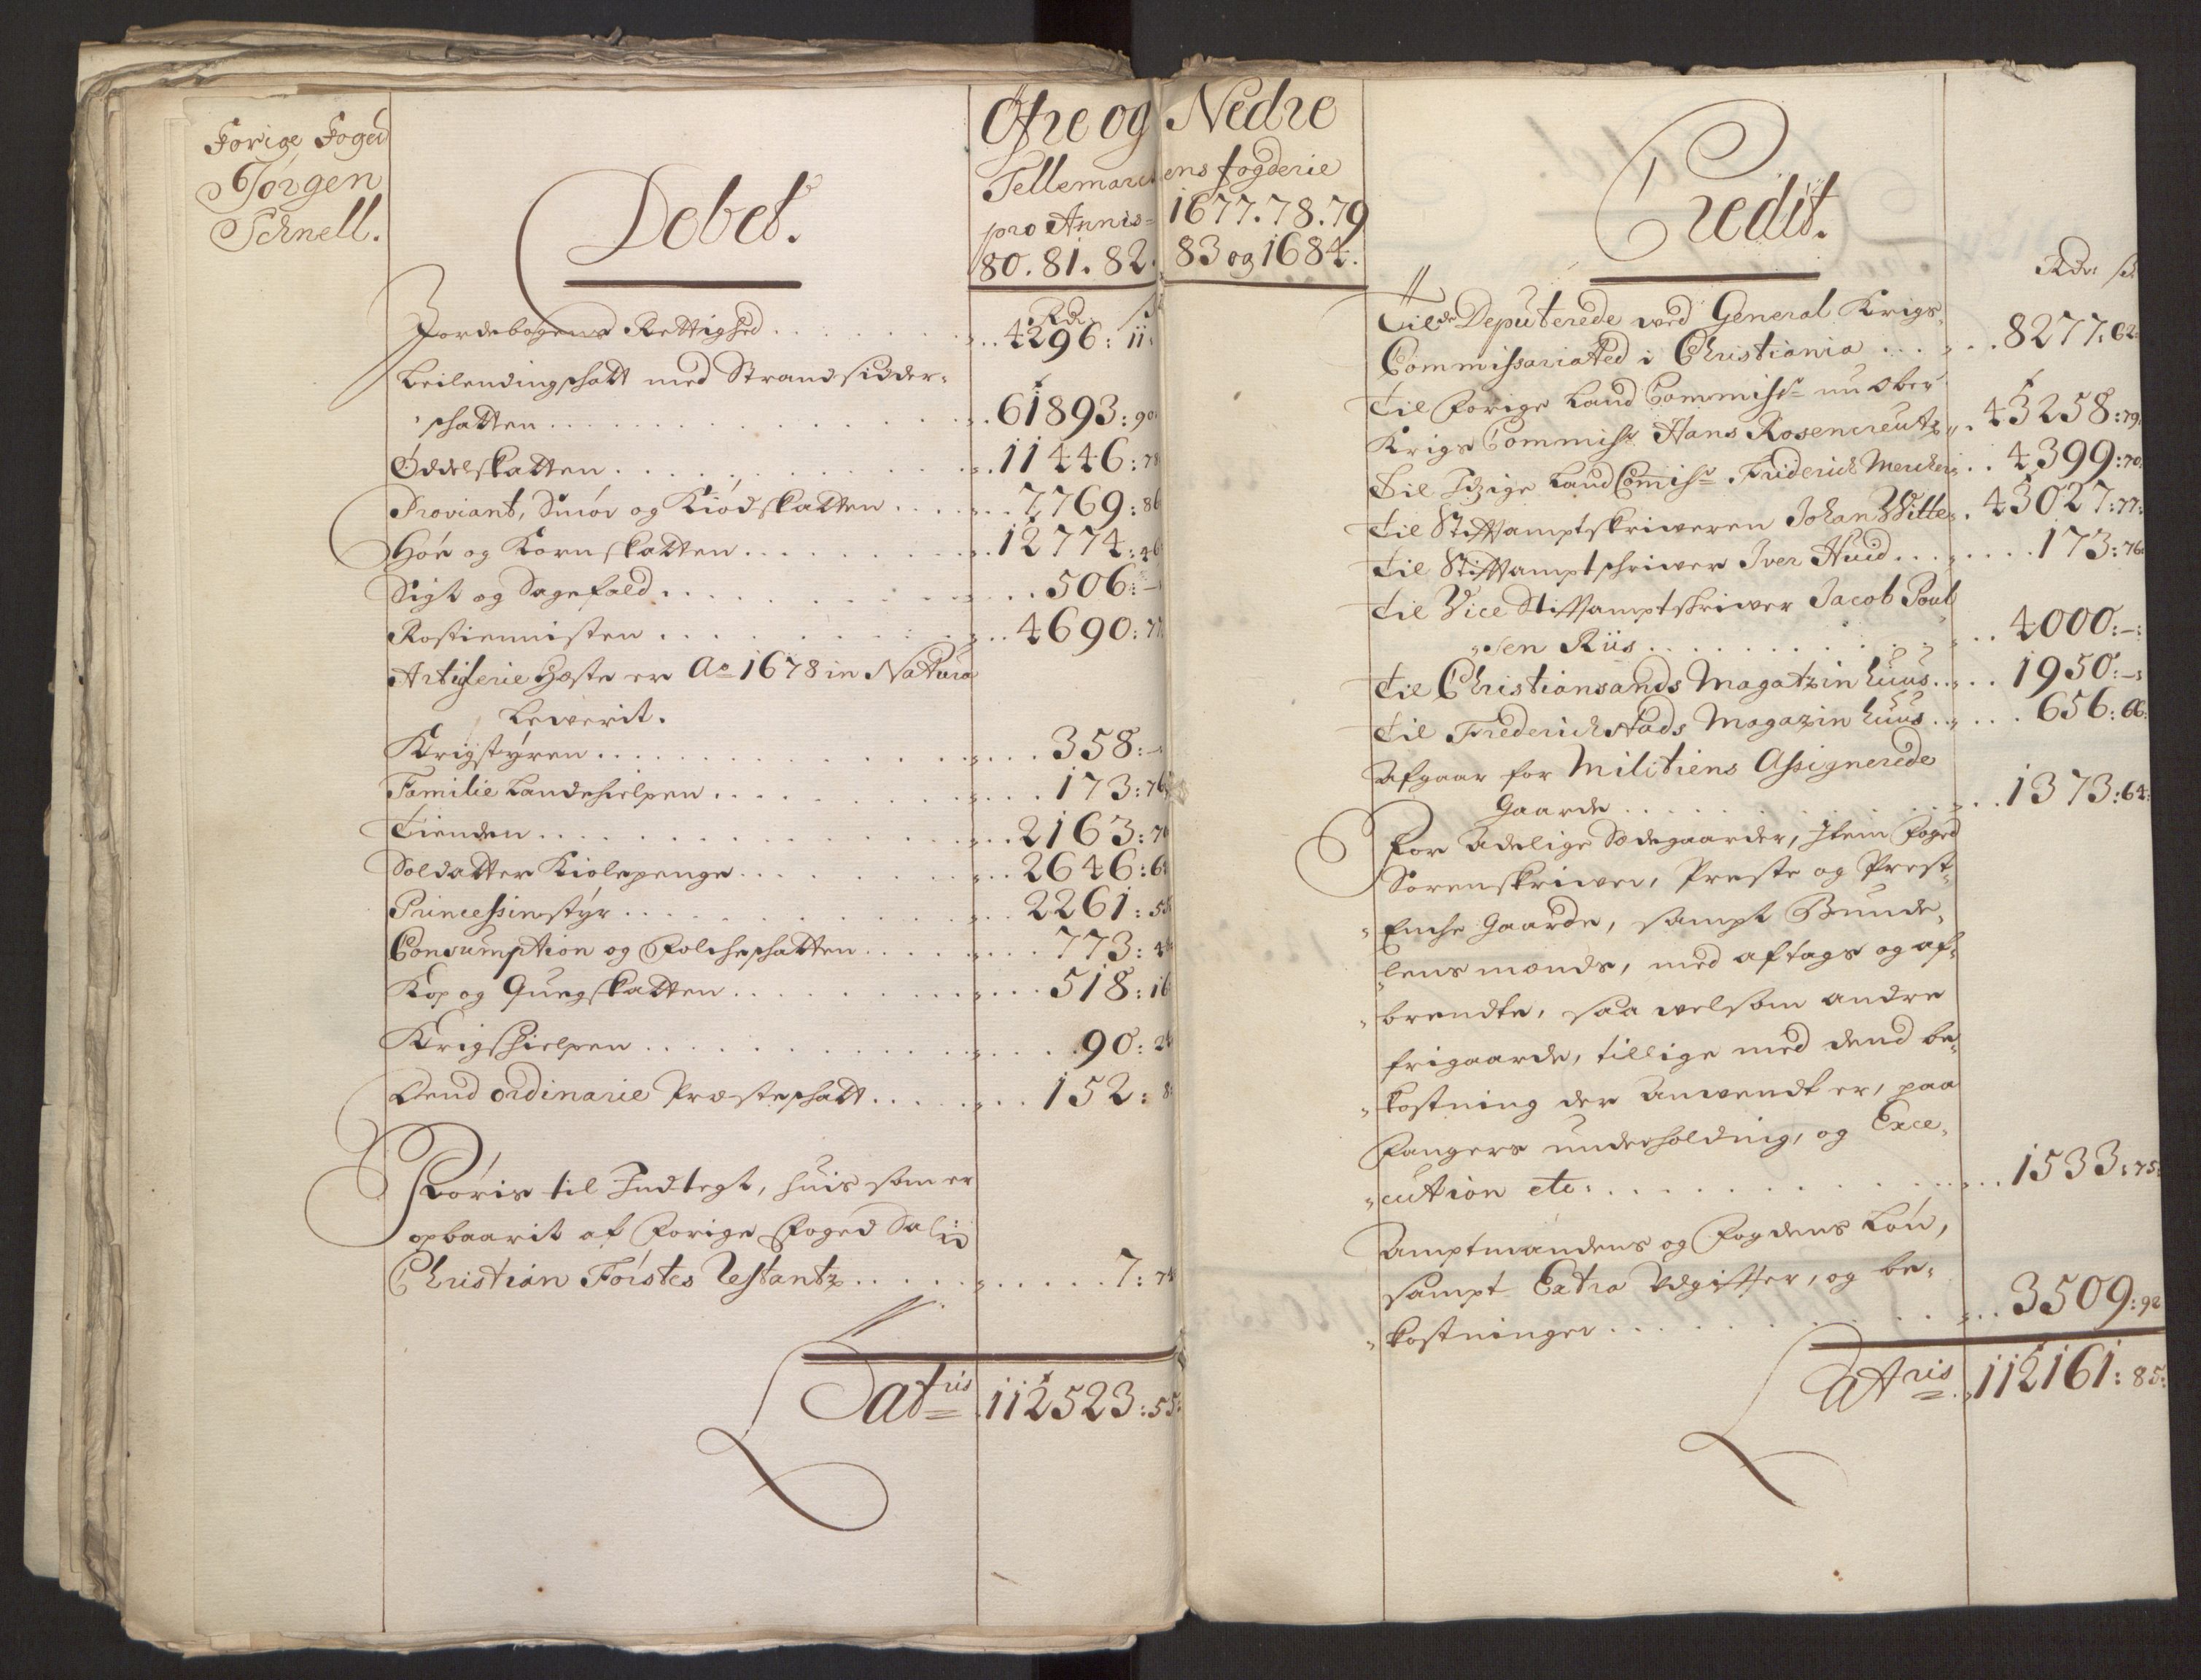 Forige Foged
Jørgen
Schnell.
Debet.
Øfre og Nedre
Tellemarckens fogderie
pro Annis 1677. 78. 79
80. 81. 82. 83 og 1684.
Rdr
Jordebogens Rettighed . . . 4296: 11
Leilendingschatt med Strandsidder-
schatten . . . 61893: 90
Oddelskatten . . . 11446: 78
Proviant, Smør og Kiødskatten . . . 7769: 86
Høe og Kornskatten . . . 12774: 46
Sigt og Sagefald . . . 506: –
Rostienisten . . . 4690: 77
Artiglerie Heste er Ao 1678 in Natura
Leverit.
Krigstyren . . . 358: –
Familie Landehielpen . . . 173: 76
Tienden . . . 2163: 76
Soldatter Kiolepenge . . . 2646: 6
Princessinstyr . . . 2261: 5
Consumption og Folcheschatten . . . 773: 4
Kop og Quegskatten . . . 518: 16
Krigshielpen . . . 90: 24
Dend ordinarie Præsteschatt . . . 152: 8
Føris til Indtegt, huis som er
opbaarit af Forige Foged Sal:
Christian Førstes Restantz . . . 7: 74
Latris 112523: 55:
Credit.
Rdr ß
Til de Deputerede wed General Krigs
Commissariated i Christiania . . . 8277: 62
Til Forige Land Commiss nu Ober
Krigs Commiss Hans Rosencreutz . 43258: 79
Til Itzige Land Commiss Friderich Mercker . . 4399: 70
Til Stiftamptskriweren Johan Witte . 43027: 77:
Til Stiftamptschriwer Iver Huid . . . 173: 76
Til Vice Stiftamptskriwer Jacob Poul
sen Riis . . . 4000: –:
Til Christiansands Magatzin huus . . . 1950: –:
Til Frederichstads Magazin huus . . . 656: 66:
Afgaar for Militiens Assignerede
Gaarde . . . 1373: 64:
For Adelige Sædegaarder, Item Foged
Sorenskriwer, Preste og Prest-
Enche Gaarde, sampt Bunde-
lensmends, med aftags og af-
brendte, saa welsom andre
frigaarde, tillige med dend be-
kostning der Anwendt er, paa
Fangers underholding, og Exce-
cution etc: . . . 1533: 75:
Amptmandens og Fogdens Løn,
sampt Extra Udgifter, og be-
kostninger . . . 3509: 92
Latris 112161: 85: